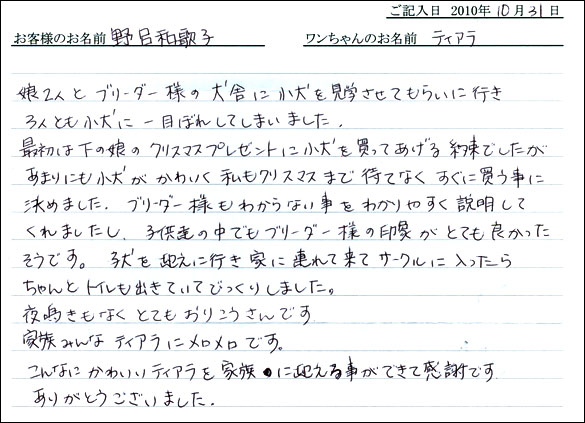 ご記入日 2010年10月31日
お客様のお名前 野呂和歌子 ワンちゃんのお名前 ティアラ
娘2人とブリーダー様の犬舎に小犬を見学させてもらいに行き
3人とも小犬に一目ぼれしてしまいました.
最初は下の娘のクリスマスプレゼントに小犬を買ってあげる約束でしたが
あまりにも小犬がかわいく私もクリスマスまで待てなくすぐに買う事に
決めました. ブリーダー様もわからない事をわかりやすく説明して
くれましたし、子供達の中でもブリーダー様の印象がとても良かった
そうです。 子犬を迎えに行き家に連れて来てサークルに入ったら
ちゃんとトイレも出きていてびっくりしました。
夜鳴きもなくとてもおりこうさんです
家族みんなティアラにメロメロです。
こんなにかわいいティアラを家族に迎える事ができて感謝です
ありがとうございました.